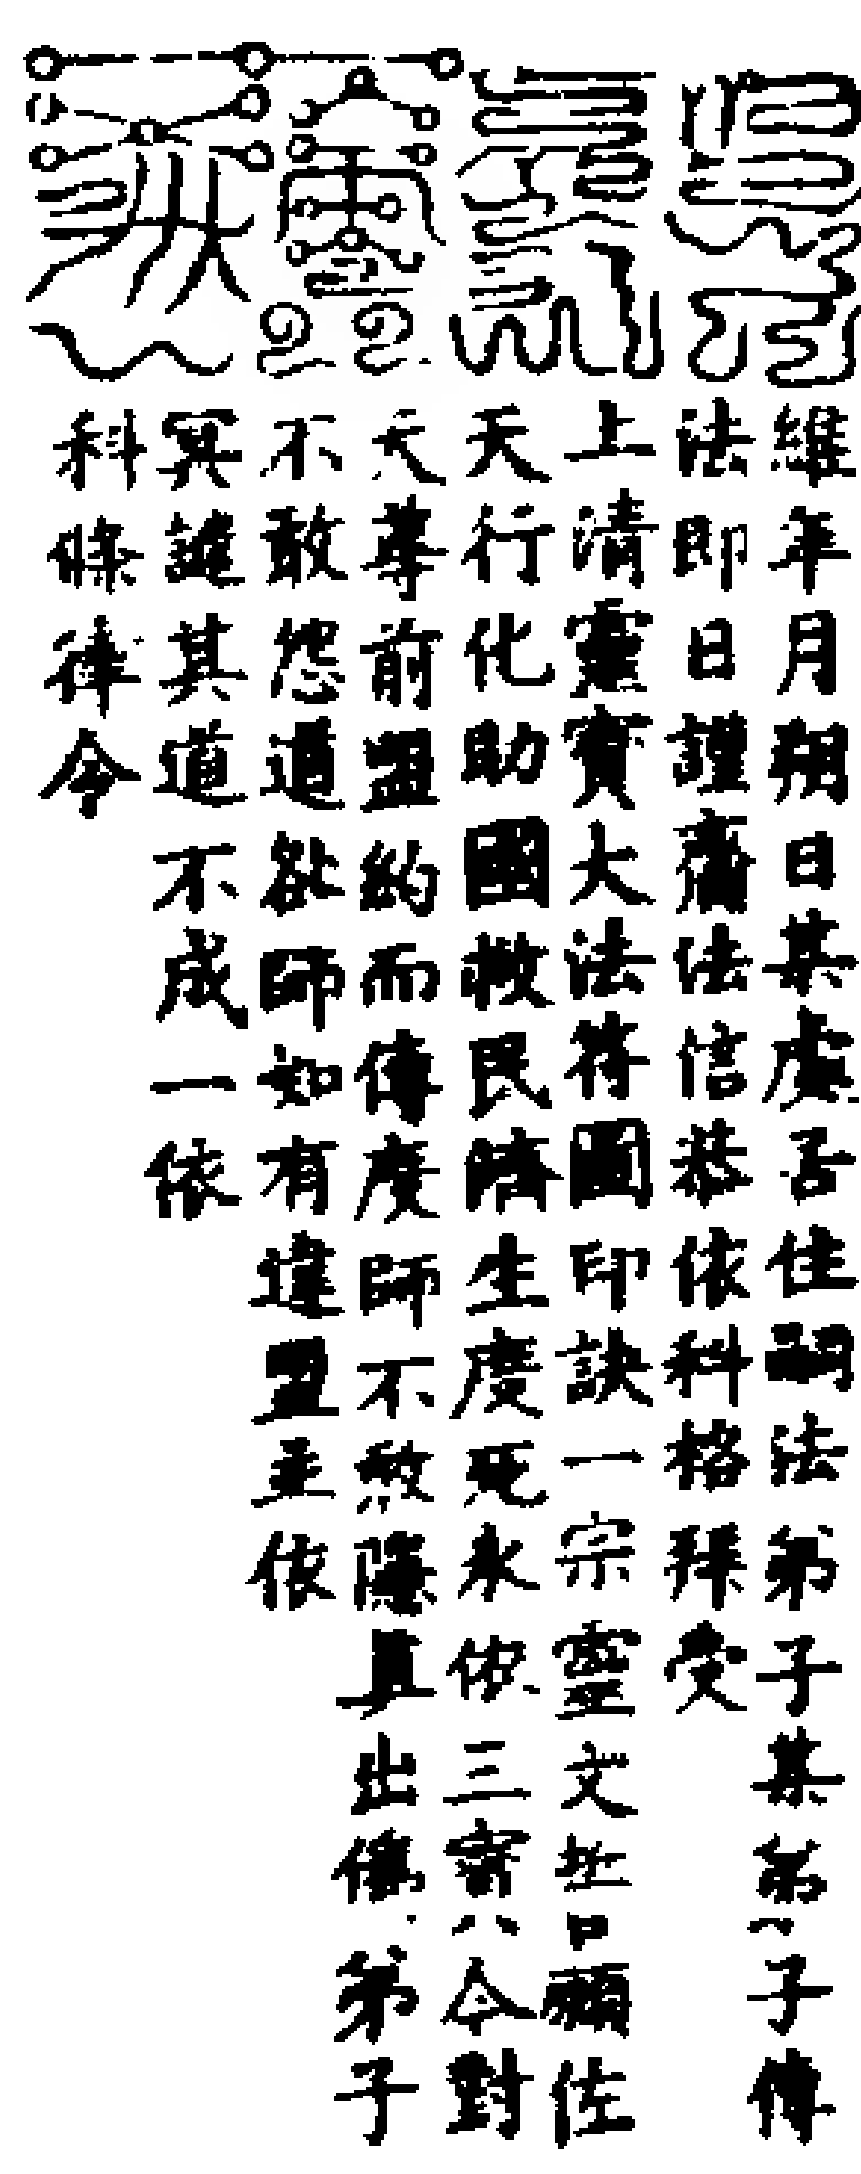 維年月朔日某處舌住嗣法弟子某弟子傳
法即日謹齎法信恭依科格拜受
上清靈寶大法符圖印訣一宗靈文 願佐
天行化助國救民濟生度死永依三寶 今對
天尊前盟約而傳度師不敢隱真出僞弟子
不敢怨道欲師如有違盟並依
冥譴其道不成一依
科條律令